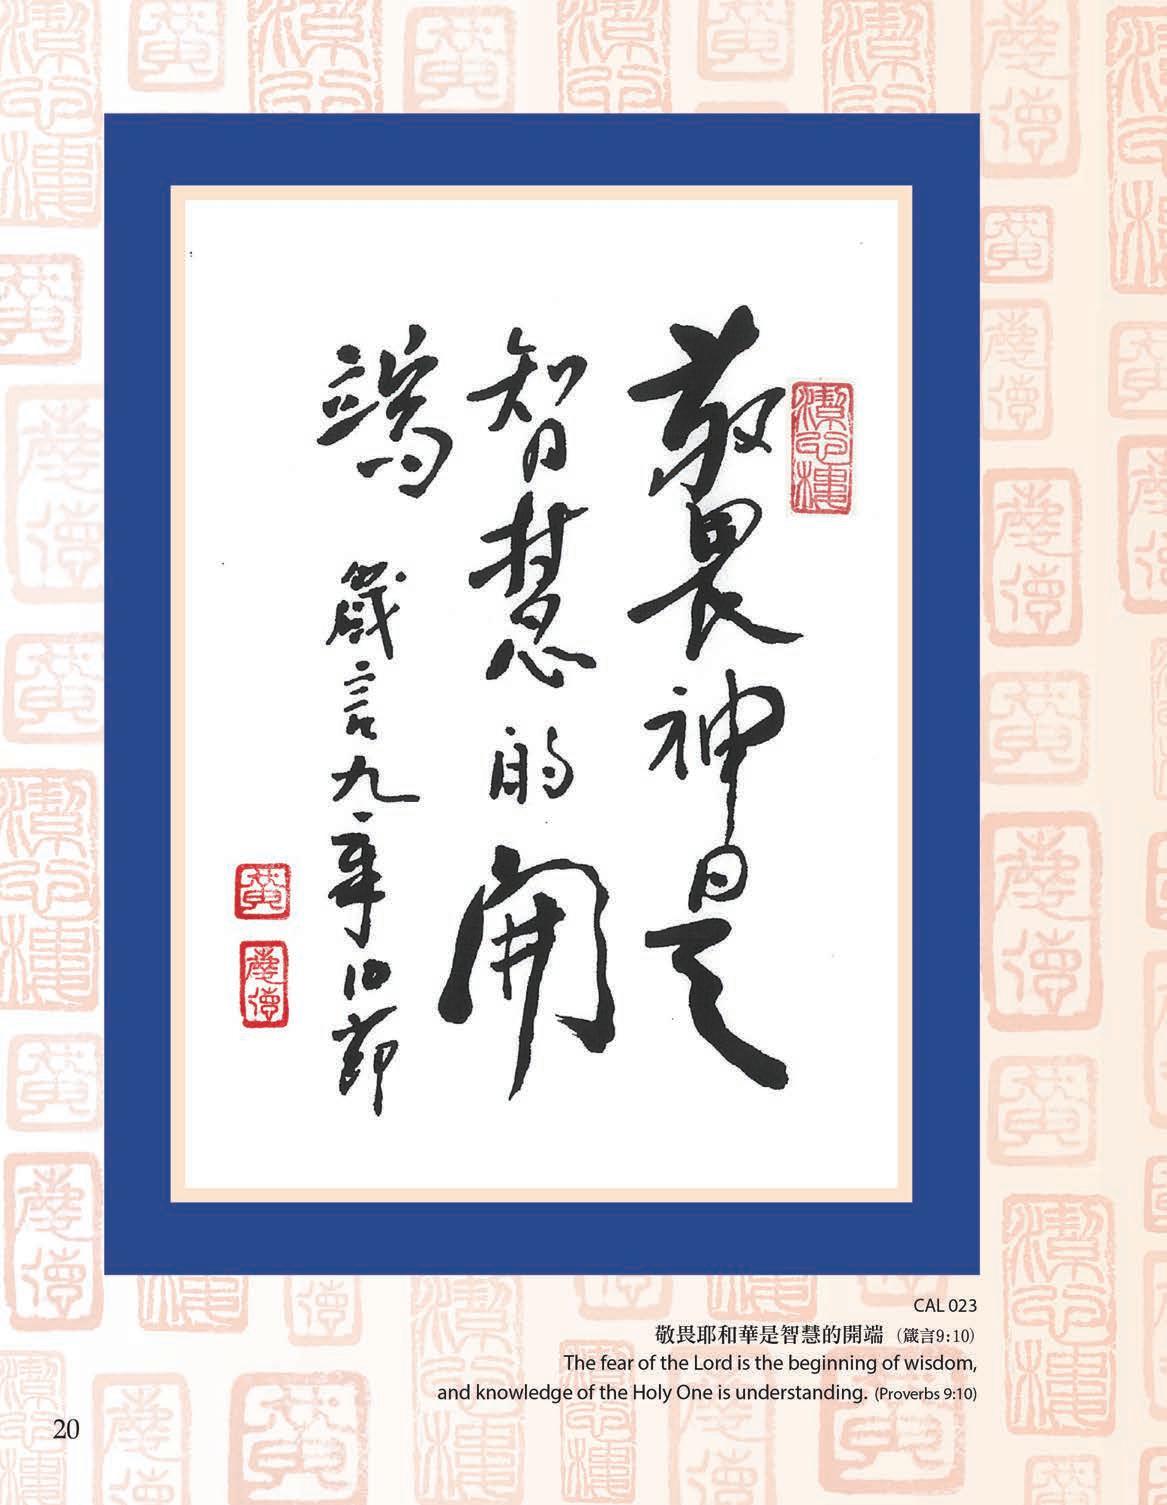 敬畏神是
智慧的開
端
箴言九章10節
潔心樓
黃
慶德
CAL 023
敬畏耶和華是智慧的開端 (箴言9:10)
The fear of the Lord is the beginning of wisdom,
and knowledge of the Holy One is understanding. (Proverbs 9:10)
20